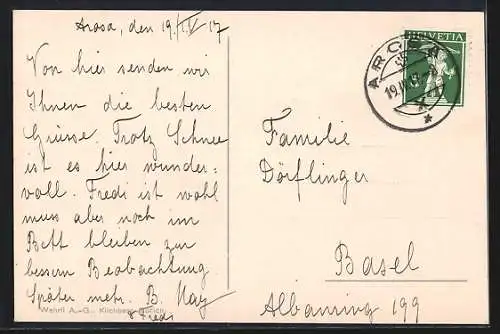 Arosa, den 19./IV 17
Von hier senden wir
Ihnen die besten
Grüsse. Trotz Schnee
ist es hier wunder-
voll. Fredi ist wohl
muss aber noch im
Bett bleiben zur
bessern Beobachtung.
Später mehr. B. May
& Fredi
Wehrli A.-G., Kilchberg
HELVETIA
Familie
Dörflinger
Basel
Albanring 199